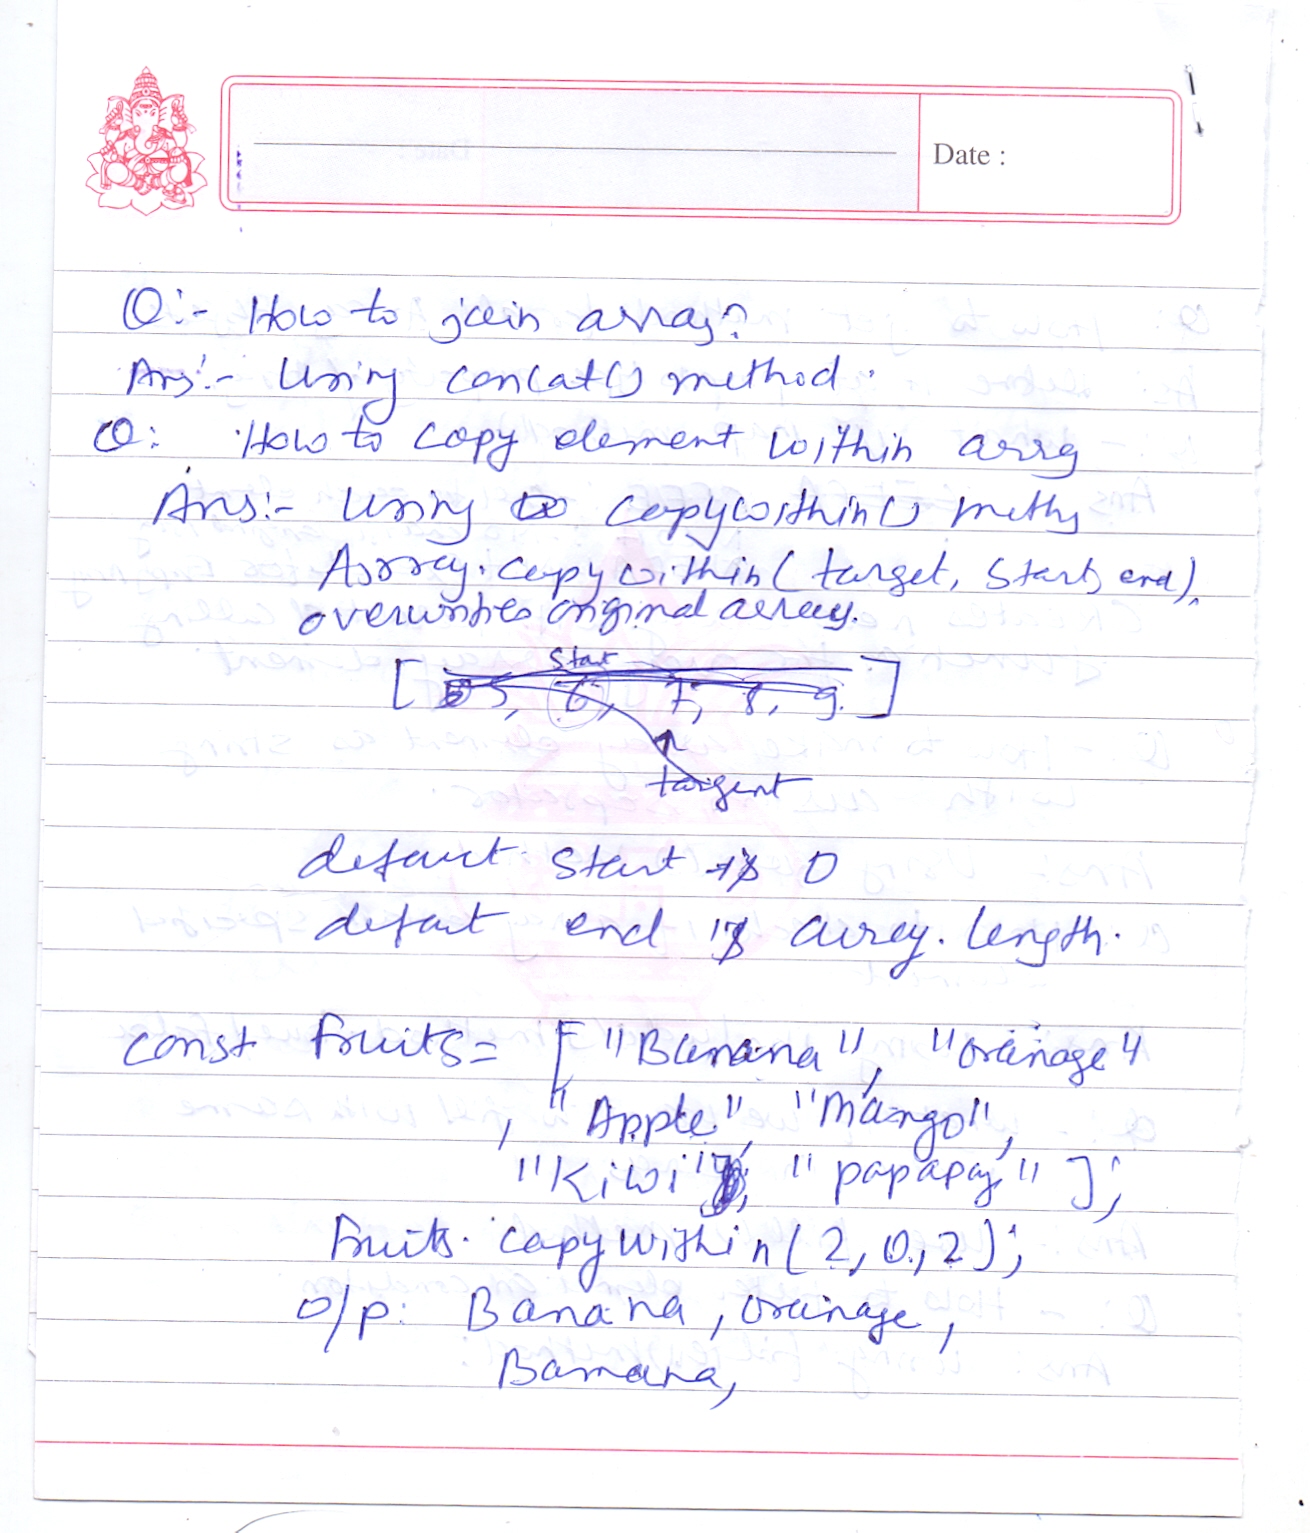 Date :
Q:- How to join array?
Ans:- Using concat() method.
Q: How to copy element within arry
Ans:- Using copywithin() meths
Array.copywithin(target, start, end).
overwrites original array.
Start
[ 5, 6, 7, 8, 9. ]
targent
defauct start is 0
defaut end is array.length.
const fruits= [ "Banana", "orainage"
, "Apple", "Mango",
"Kiwi", "papapay" ];
fruits.copywithin(2,0,2);
o/p: Banana, orainage,
Banana,